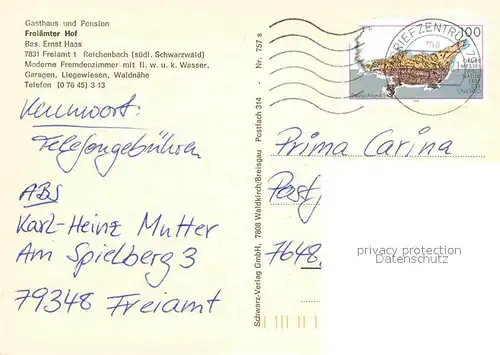 Gasthaus und Pension
Freiämter Hof
Bes. Ernst Haas
7831 Freiamt 1 Reichenbach (südl. Schwarzwald)
Moderne Fremdenzimmer mit fl. w. u. k. Wasser.
Garagen, Liegewiesen, Waldnähe
Telefon (0 76 45) 3 13
Kennwort:
Telefongebühren
ABS
Karl-Heinz Mutter
Am Spielberg 3
79348 Freiamt
Schwarz-Verlag GmbH, 7808 Waldkirch/Breisgau Postfach 314 - Nr. 757 s
BRIEFZENTRUM
100
Prima Carina
Postf
7648
privacy protection
Datenschutz